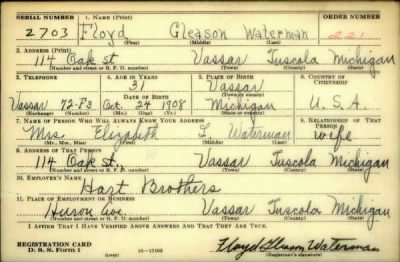 SERIAL NUMBER 1. NAME (Print) ORDER NUMBER
2703 Floyd Gleason Waterman 221
(First) (Middle) (Last)
2. ADDRESS (Print)
114 Oak st. Vassar Tuscola Michigan
(Number and street or R. F. D. number) (Town) (County) (State)
3. TELEPHONE 4. AGE IN YEARS 5. PLACE OF BIRTH 6. COUNTRY OF CITIZENSHIP
31 Vassar
DATE OF BIRTH (Town or county)
Vassar 72-F3 Oct. 24 1908 Michigan U.S.A.
(Exchange) (Number) (Mo.) (Day) (Yr.) (State or country)
7. NAME OF PERSON WHO WILL ALWAYS KNOW YOUR ADDRESS 8. RELATIONSHIP OF THAT PERSON
Mrs Elizabeth L. Waterman wife
(Mr., Mrs., Miss) (First) (Middle) (Last)
9. ADDRESS OF THAT PERSON
114 Oak st. Vassar Tuscola Michigan
(Number and street or R. F. D. number) (Town) (County) (State)
10. EMPLOYER'S NAME
Hart Brothers
11. PLACE OF EMPLOYMENT OR BUSINESS
Huron Ave. Vassar Tuscola Michigan
(Number and street or R. F. D. number) (Town) (County) (State)
I AFFIRM THAT I HAVE VERIFIED ABOVE ANSWERS AND THAT THEY ARE TRUE.
REGISTRATION CARD
D. S. S. Form 1 (over) Floyd Gleason Waterman
(Registrant's signature)